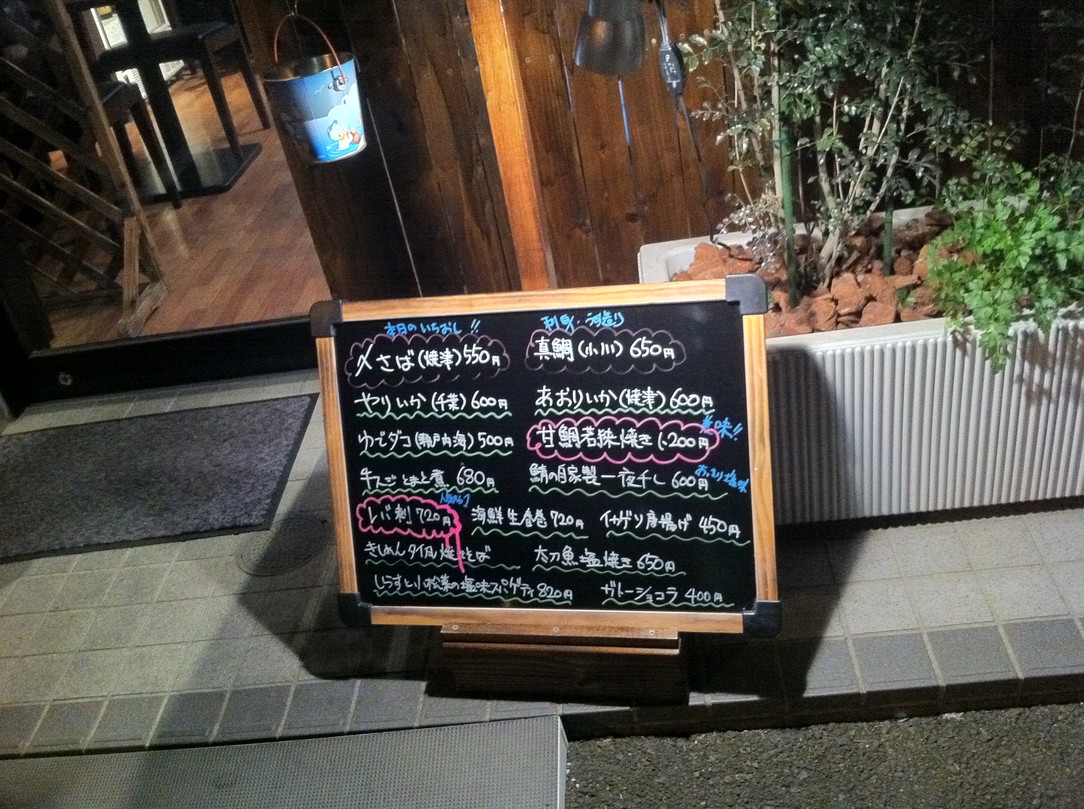 本日のいちおし!!
〆さば(焼津)550円
やりいか(千葉)600円
ゆでダコ(瀬戸内海)500円
牛スジとまと煮 680円
レバ刺 720円
きしめんタイ風焼そば
しらすと小松菜の塩味スパゲティ 820円
刺身・
真鯛(小川) 650円
あおりいか(焼津)600円
美味!!
甘鯛若狭焼き1,200円
鯖の自家製一夜干し 600円
海鮮生春巻 720円
イカゲソ唐揚げ 450円
太刀魚塩焼き 650円
ガトーショコラ 400円